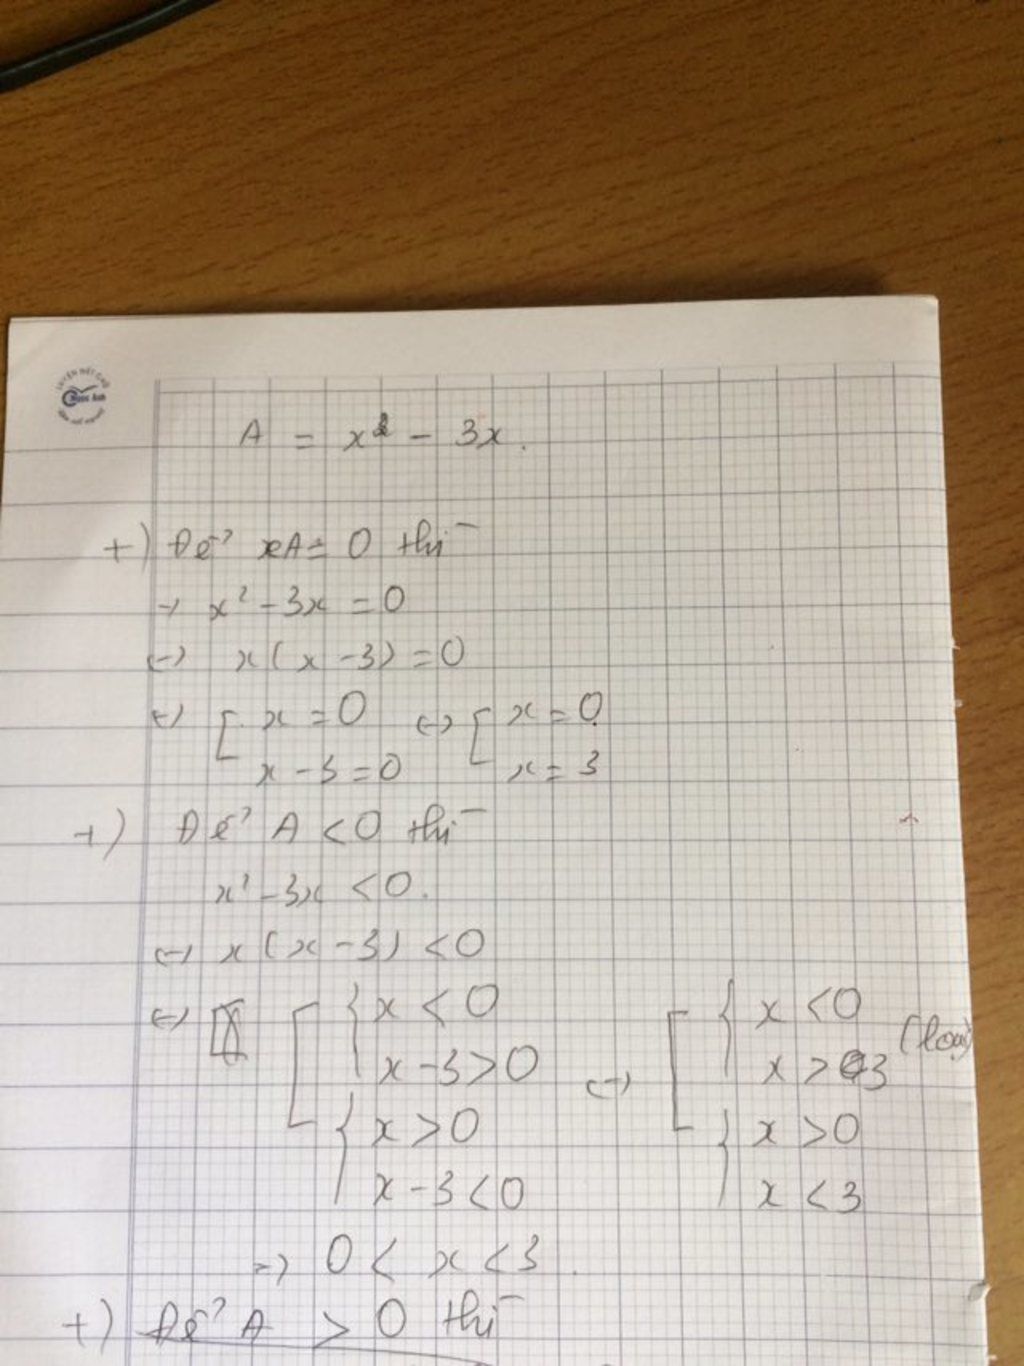 A = x² - 3x.
+) Để A = 0 thì
→ x² - 3x = 0
↔ x(x - 3) = 0
↔ [ x = 0 ↔ [ x = 0
x - 3 = 0 x = 3
+) Để A < 0 thì
x² - 3x < 0.
↔ x(x - 3) < 0
↔ [ { x < 0 [ { x < 0
x - 3 > 0 ↔ x > 3 (loại)
{ x > 0 { x > 0
x - 3 < 0 x < 3
→ 0 < x < 3.
+) Để A > 0 thì